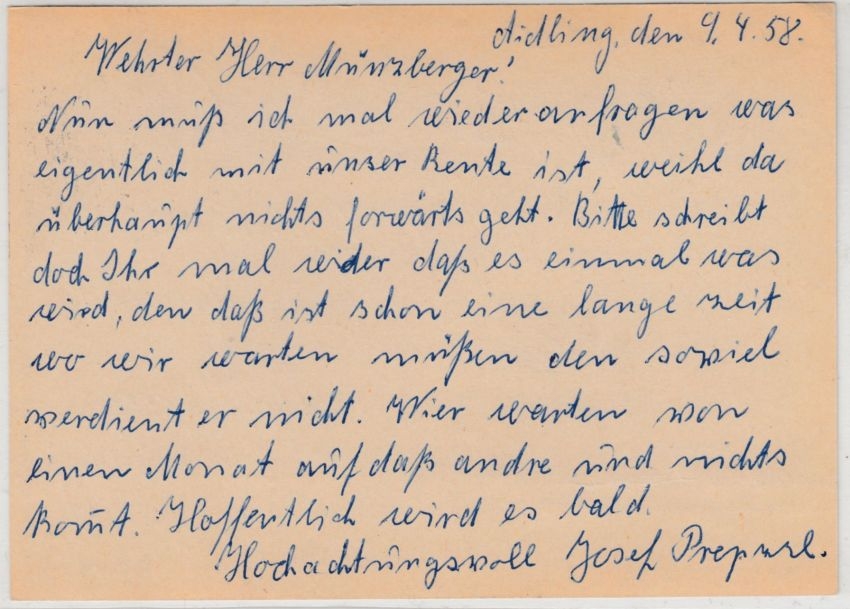 Aidling, den 9.4.58.
Wehrter Herr Münzberger!
Nun muß ich mal wieder anfragen was
eigentlich mit ünser Rente ist, weihl da
überhaupt nichts forwärts geht. Bitte schreibt
doch Ihr mal wider daß es einmal was
wird, den daß ist schon eine lange zeit
wo wir warten müßen den soviel
verdient er nicht. Wier warten von
einen Monat auf daß andre und nichts
komt. Hoffentlich wird es bald.
Hochachtungsvoll Josef